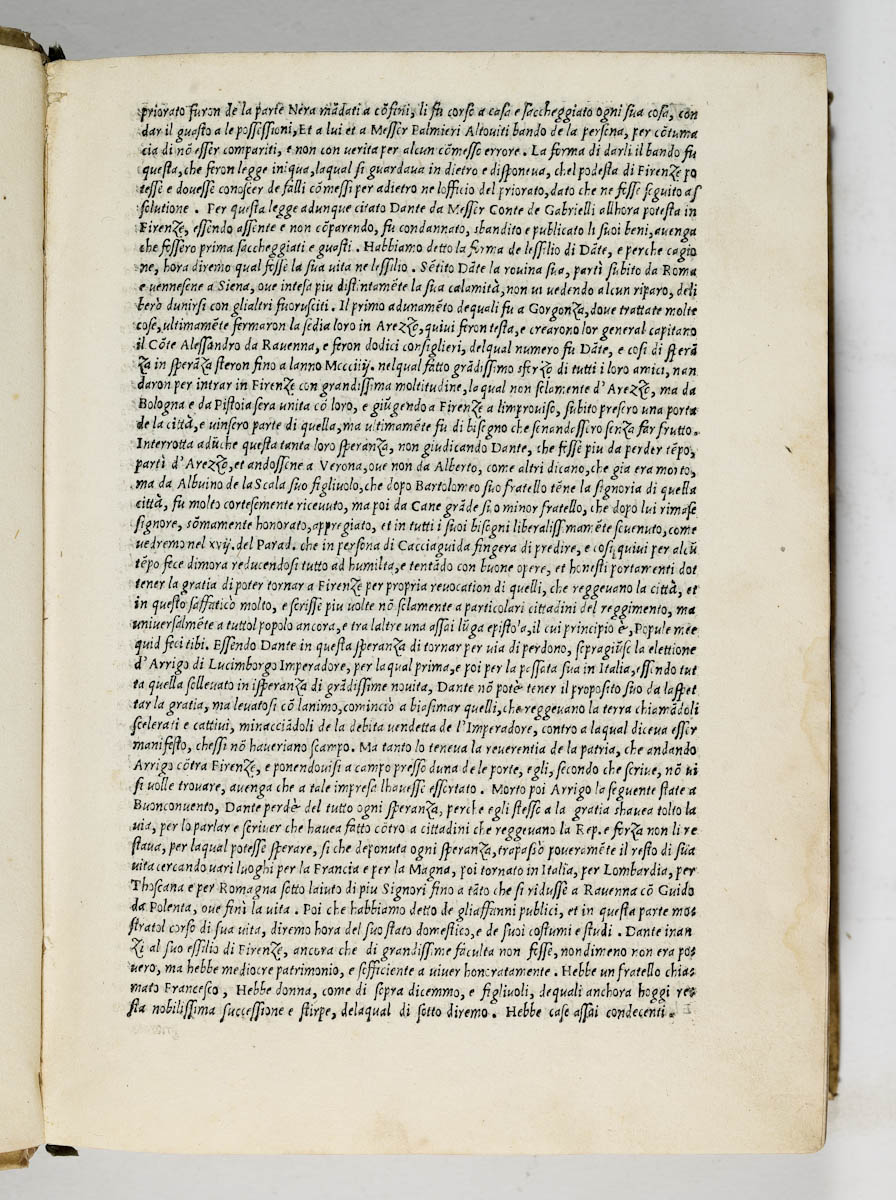 priorato furon de la parte Nera mãdati a cõfini, li fu corso a casa e saccheggiato ogni sua cosa, con
dar il guasto a le possessioni, Et a lui et a Messer Palmieri Altoviti bando de la persona, per cõtuma
cia di nõ esser compariti, e non con verita per alcun cõmesso errore. La forma di darli il bando fu
questa, che feron legge iniqua, laqual si guardava in dietro e disponeva, chel podesta di Firenze po
tesse e dovesse conoscer de falli cõmessi per adietro ne lofficio del priorato, dato che ne fosse seguito as
solutione. Per questa legge adunque citato Dante da Messer Conte de Gabrielli allhora potesta in
Firenze, essendo assente e non cõparendo, fu condannato, sbandito e publicato li suoi beni, avenga
che fossero prima saccheggiati e guasti. Habbiamo detto la forma de lessilio di Dãte, e perche cagio
ne, hora diremo qual fosse la sua vita ne lessilio. Sẽtito Dãte la rovina sua, partì subito da Roma
e vennesene a Siena, ove intesa piu distintamẽte la sua calamità, non vi vedendo alcun riparo, deli
berò dunirsi con glialtri fuorusciti. Il primo adunamẽto dequali fu a Gorgonza, dove trattate molte
cose, ultimamẽte fermaron la sedia loro in Arezzo, quivi feron testa, e crearono lor general capitano
il Cõte Alessandro da Ravenna, e feron dodici consiglieri, delqual numero fu Dãte, e cosi di sperã
za in sperãza steron fino a lanno Mcciiij. nelqual fatto grãdissimo sforzo di tutti i loro amici, nan
daron per intrar in Firenze con grandissima moltitudine, la qual non solamente d'Arezzo, ma da
Bologna e da Pistoia sera unita cõ loro, e giũgendo a Firenze a limproviso, subito presero una porta
de la città, e vinsero parte di quella, ma ultimamẽte fu di bisogno che senandassero senza far frutto.
Interrotta adũche questa tanta loro speranza, non giudicando Dante, che fosse piu da perder tẽpo,
partì d'Arezzo, et andossene a Verona, ove non da Alberto, come altri dicano, che gia era morto,
ma da Albuino de la Scala suo figliuolo, che dopo Bartolomeo suo fratello tẽne la signoria di quella
città, fu molto cortesemente ricevuto, ma poi da Cane grãde suo minor fratello, che dopo lui rimase
signore, sõmamente honorato, appregiato, et in tutti i suoi bisogni liberalissimamẽte sovenuto, come
vedremo nel xvij. del Parad. che in persona di Cacciaguida fingera di predire, e cosi quivi per alcũ
tẽpo fece dimora reducendosi tutto ad humilta, e tentãdo con buone opere, et honesti portamenti dot
tener la gratia di poter tornar a Firenze per propria revocation di quelli, che reggevano la città, et
in questo saffatico molto, e scrisse piu volte nõ solamente a particolari cittadini del reggimento, ma
universalmẽte a tuttol popolo ancora, e tra laltre una assai lũga epistola, il cui principio è, Popule mee
quid feci tibi. Essendo Dante in questa speranza di tornar per via di perdono, sopragiũse la elettione
d'Arrigo di Lucimborgo Imperadore, per laqual prima, e poi per la passata sua in Italia, essendo tut
ta quella sollevato in isperanza di grãdissime novita, Dante nõ potè tener il proposito suo da laspet
tar la gratia, ma levatosi cõ lanimo, cominciò a biasimar quelli, che reggevano la terra chiamãdoli
scelerati e cattivi, minacciãdoli de la debita vendetta de l'Imperadore, contro a laqual diceva esser
manifesto, chessi nõ haveriano scampo. Ma tanto lo teneva la reverentia de la patria, che andando
Arrigo cõtra Firenze, e ponendovisi a campo presso duna dele porte, egli, secondo che scrive, nõ vi
si volle trovare, avenga che a tale impresa lhavesse essortato. Morto poi Arrigo la seguente state a
Buonconvento, Dante perdè del tutto ogni speranza, perche egli stesso a la gratia shavea tolto la
via, per lo parlar e scriver che havea fatto cõtro a cittadini che reggevano la Rep. e forza non li re
stava, per laqual potesse sperare, si che deponuta ogni speranza, trapassò poveramẽte il resto di sua
vita cercando vari luoghi per la Francia e per la Magna, poi tornato in Italia, per Lombardia, per
Thoscana e per Romagna sotto laiuto di piu Signori fino a tãto che si ridusse a Ravenna cõ Guido
da Polenta, ove finì la vita. Poi che habbiamo detto de gliaffanni publici, et in questa parte mos
stratol corso di sua vita, diremo hora del suo stato domestico, e de suoi costumi e studi. Dante inan
zi al suo essilio di Firenze, ancora che di grandissime faculta non fosse, nondimeno non era po
vero, ma hebbe mediocre patrimonio, e sofficiente a viver honoratamente. Hebbe un fratello chia
mato Francesco, Hebbe donna, come di sopra dicemmo, e figliuoli, dequali anchora hoggi re
sta nobilissima successione e stirpe, delaqual di sotto diremo. Hebbe case assai condecenti.